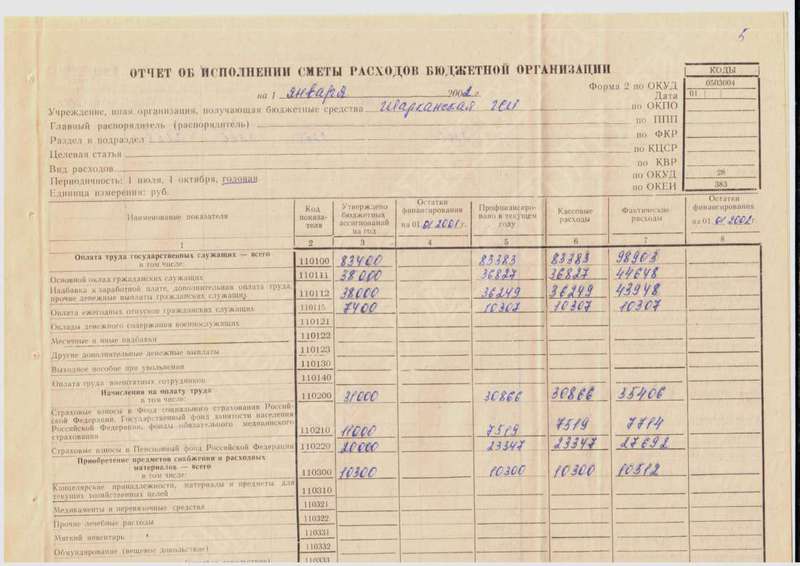 5
ОТЧЕТ ОБ ИСПОЛНЕНИИ СМЕТЫ РАСХОДОВ БЮДЖЕТНОЙ ОРГАНИЗАЦИИ
КОДЫ
Форма 2 по ОКУД 0503004
на 1 января 2002 г. Дата 01
Учреждение, иная организация, получающая бюджетные средства Шарканская по ОКПО
Главный распорядитель (распорядитель) по ППП
Раздел и подраздел по ФКР
Целевая статья по КЦСР
Вид расходов по КВР
Периодичность: 1 июля, 1 октября, годовая по ОКУД 28
Единица измерения: руб. по ОКЕИ 383
Наименование показателя Код показателя Утверждено бюджетных ассигнований на год Остатки финансирования на 01.01.2001 г. Профинансировано в текущем году Кассовые расходы Фактические расходы Остатки финансирования на 01.01.2002 г.
1 2 3 4 5 6 7 8
Оплата труда государственных служащих — всего 110100 83400 83383 83383 98903
в том числе:
Основной оклад гражданских служащих 110111 38000 36827 36827 44648
Надбавка к заработной плате, дополнительная оплата труда,
прочие денежные выплаты гражданских служащих 110112 38000 36249 36249 43948
Оплата ежегодных отпусков гражданских служащих 110113 7400 10307 10307 10307
Оклады денежного содержания военнослужащих 110121
Месячные и иные надбавки 110122
Другие дополнительные денежные выплаты 110123
Выходное пособие при увольнении 110130
Оплата труда внештатных сотрудников 110140
Начисления на оплату труда 110200 31000 30866 30866 35406
в том числе:
Страховые взносы в Фонд социального страхования Россий-
ской Федерации, Государственный фонд занятости населения
Российской Федерации, фонды обязательного медицинского
страхования 110210 11000 7519 7519 7714
Страховые взносы в Пенсионный фонд Российской Федерации 110220 20000 23347 23347 27692
Приобретение предметов снабжения и расходных
материалов — всего 110300 10300 10300 10300 10512
в том числе:
Канцелярские принадлежности, материалы и предметы для
текущих хозяйственных целей 110310
Медикаменты и перевязочные средства 110321
Прочие лечебные расходы 110322
Мягкий инвентарь 110331
Обмундирование (вещевое довольствие) 110332
110333